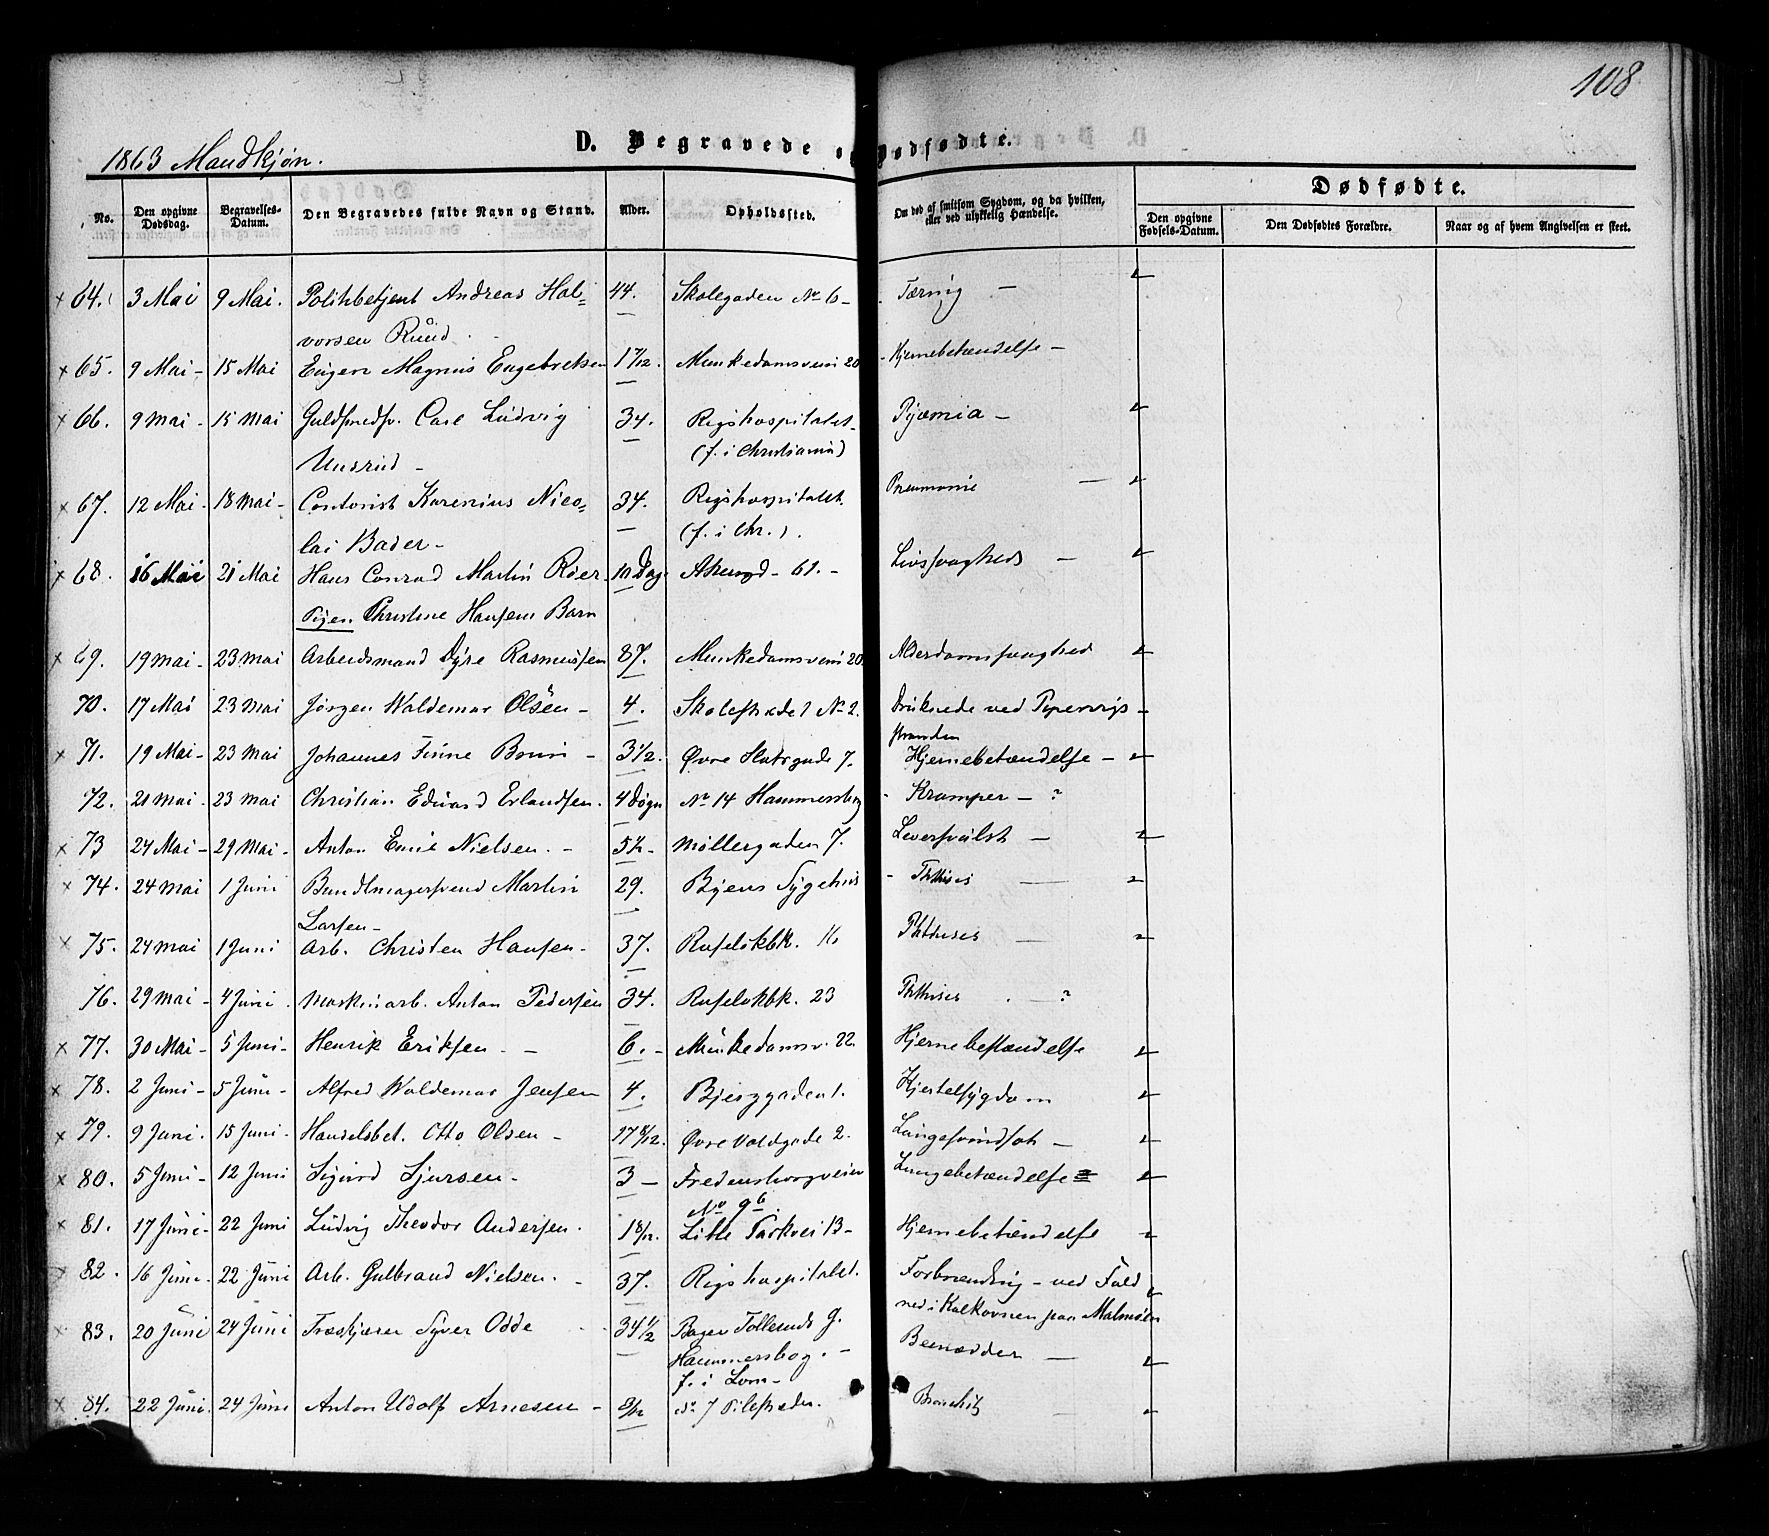 108
1863 Mandkjøn.
D. Begravede og Dødfødte.
No.
Den opgivne Dødsdag.
Begravelses-Datum.
Den Begravedes fulde Navn og Stand.
Alder.
Opholdssted.
Om død af smitsom Sygdom, og da hvilken, eller ved ulykkelig Hændelse.
Dødfødte.
Den opgivne Fødsels-Datum.
Den Dødfødtes Forældre.
Naar og af hvem Angivelsen er skeet.
64. 3 Mai 9 Mai. Politibetjent Andreas Hal- 44. Skolegaden No 6 - Tæring -
vorsen Ruud
65. 9 Mai - 15 Mai Eugen Magnus Engebretsen 1 7/12. Munkedamsveien 20 - Hjernebetændelse -
66. 9 Mai - 15 Mai Guldsmedsv. Carl Ludvig 34. Rigshospitalet Pyæmia -
- (f. i Christiania)
67. 12 Mai - 18 Mai - Contorist Karenius Nico- 34. Rigshospitalet Pneumonie -
lai Bader - (f. i Chr.).
68. 16 Mai 21 Mai Hans Conrad Martin Røer - 10 Dag. - 61. - Livssvaghed -
Pigen Christine Hansens Barn
69. 19 Mai - 23 Mai Arbeidsmand Dyre Rasmussen 87. Munkedamsveien 20. Alderdomssvaghed
70. 17 Mai 23 Mai Jørgen Waldemar Olsen - 4. Skolestrædet No 2. Druknede ved Pipervigs-
stranden
71. 19 Mai - 23 Mai Johannes Finne Bruun - 3 1/2. Øvre Slotsgade 7. Hjernebetændelse -
72. 21 Mai - 23 Mai Christian Eduard Erlandsen. 4 Døgn No 14 Hammersborg - Kramper - ?
73 24 Mai - 29 Mai - Anton Emil Nielsen. - Møllergaden 7. Leversvulst -
74. 24 Mai 1 Juni Bundtmagersvend Martin 29. Byens Sygehus - Phthisis -
Larsen -
75. 24 Mai 1 Juni Arb. Christen Hansen - 37. Ruseløkbk. 16 Phthisis -
76. 29 Mai - 4 Juni. Maskinarb. Anton Pedersen 34. Ruseløkbk. 23 Phthisis. - ?
77. 30 Mai - 5 Juni - Henrik Eriksen - - 6. - Munkedamsv. 22. Hjernebetændelse
78. 2 Juni - 5 Juni - Alfred Waldemar Jensen 4. Bjerggaden 1. Kjertelsygdom
79. 9 Juni. 15 Juni - Handelsbet. Otto Olsen - 17 8/12. Øvre Voldgade 2. Lungesvindsot -
80. 5 Juni - 12 Juni Sigurd Sjursen - 3 - Fredensborgveien Lungebetændelse
No 9b.
81. 17 Juni - 22 Juni Ludvig Theodor Andersen. 1 8/12. Lille Parkvei 13 - Hjernebetændelse
82. 16 Juni - 22 Juni Arb. Gulbrand Nielsen. - 37. Rigshospitalet. Forbrænding - ved Fald
ned i Kalkovnen paa Malmøen
83. 20 Juni 24 Juni Træskjærer Syver Odde 34 1/2 Bager Tollefsens G. Beenædder -
Hammersborg. -
f. i Lom -
84. 22 Juni. 24 Juni Anton Udolf Arnesen - No 7 Pilestrædet. Bronchit